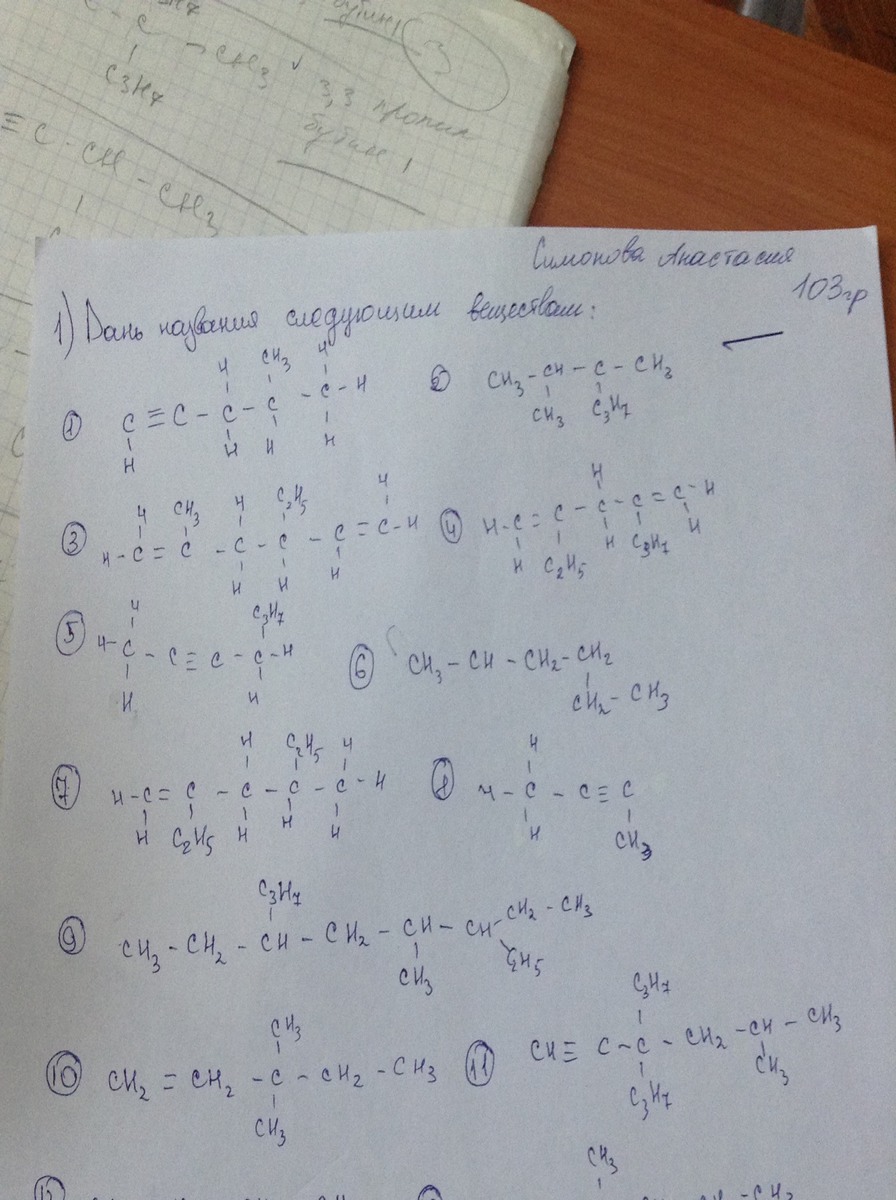 C3H7
CH3
3,3 пропил
бутин 1
≡ C - CH - CH3
3
Симонова Анастасия
103гр
1) Дань названия следующим веществам:
H CH3 H
① C ≡ C - C - C - C - H
H H H H
② CH3 - CH - C - CH3
CH3 C3H7
H CH3 H C2H5 H
③ H - C = C - C - C - C = C - H
H H H
H
④ H - C = C - C - C = C - H
H C2H5 H C3H7 H
H C3H7
⑤ H - C - C ≡ C - C - H
H H
⑥ CH3 - CH - CH2 - CH2
CH2 - CH3
H C2H5 H
⑦ H - C = C - C - C - C - H
H C2H5 H H H
H
⑧ H - C - C ≡ C
H CH3
C3H7
⑨ CH3 - CH2 - CH - CH2 - CH - CH CH2 - CH3
CH3 C2H5
CH3
⑩ CH2 = CH2 - C - CH2 - CH3
CH3
C3H7
⑪ CH ≡ C - C - CH2 - CH - CH3
C3H7 CH3
CH3